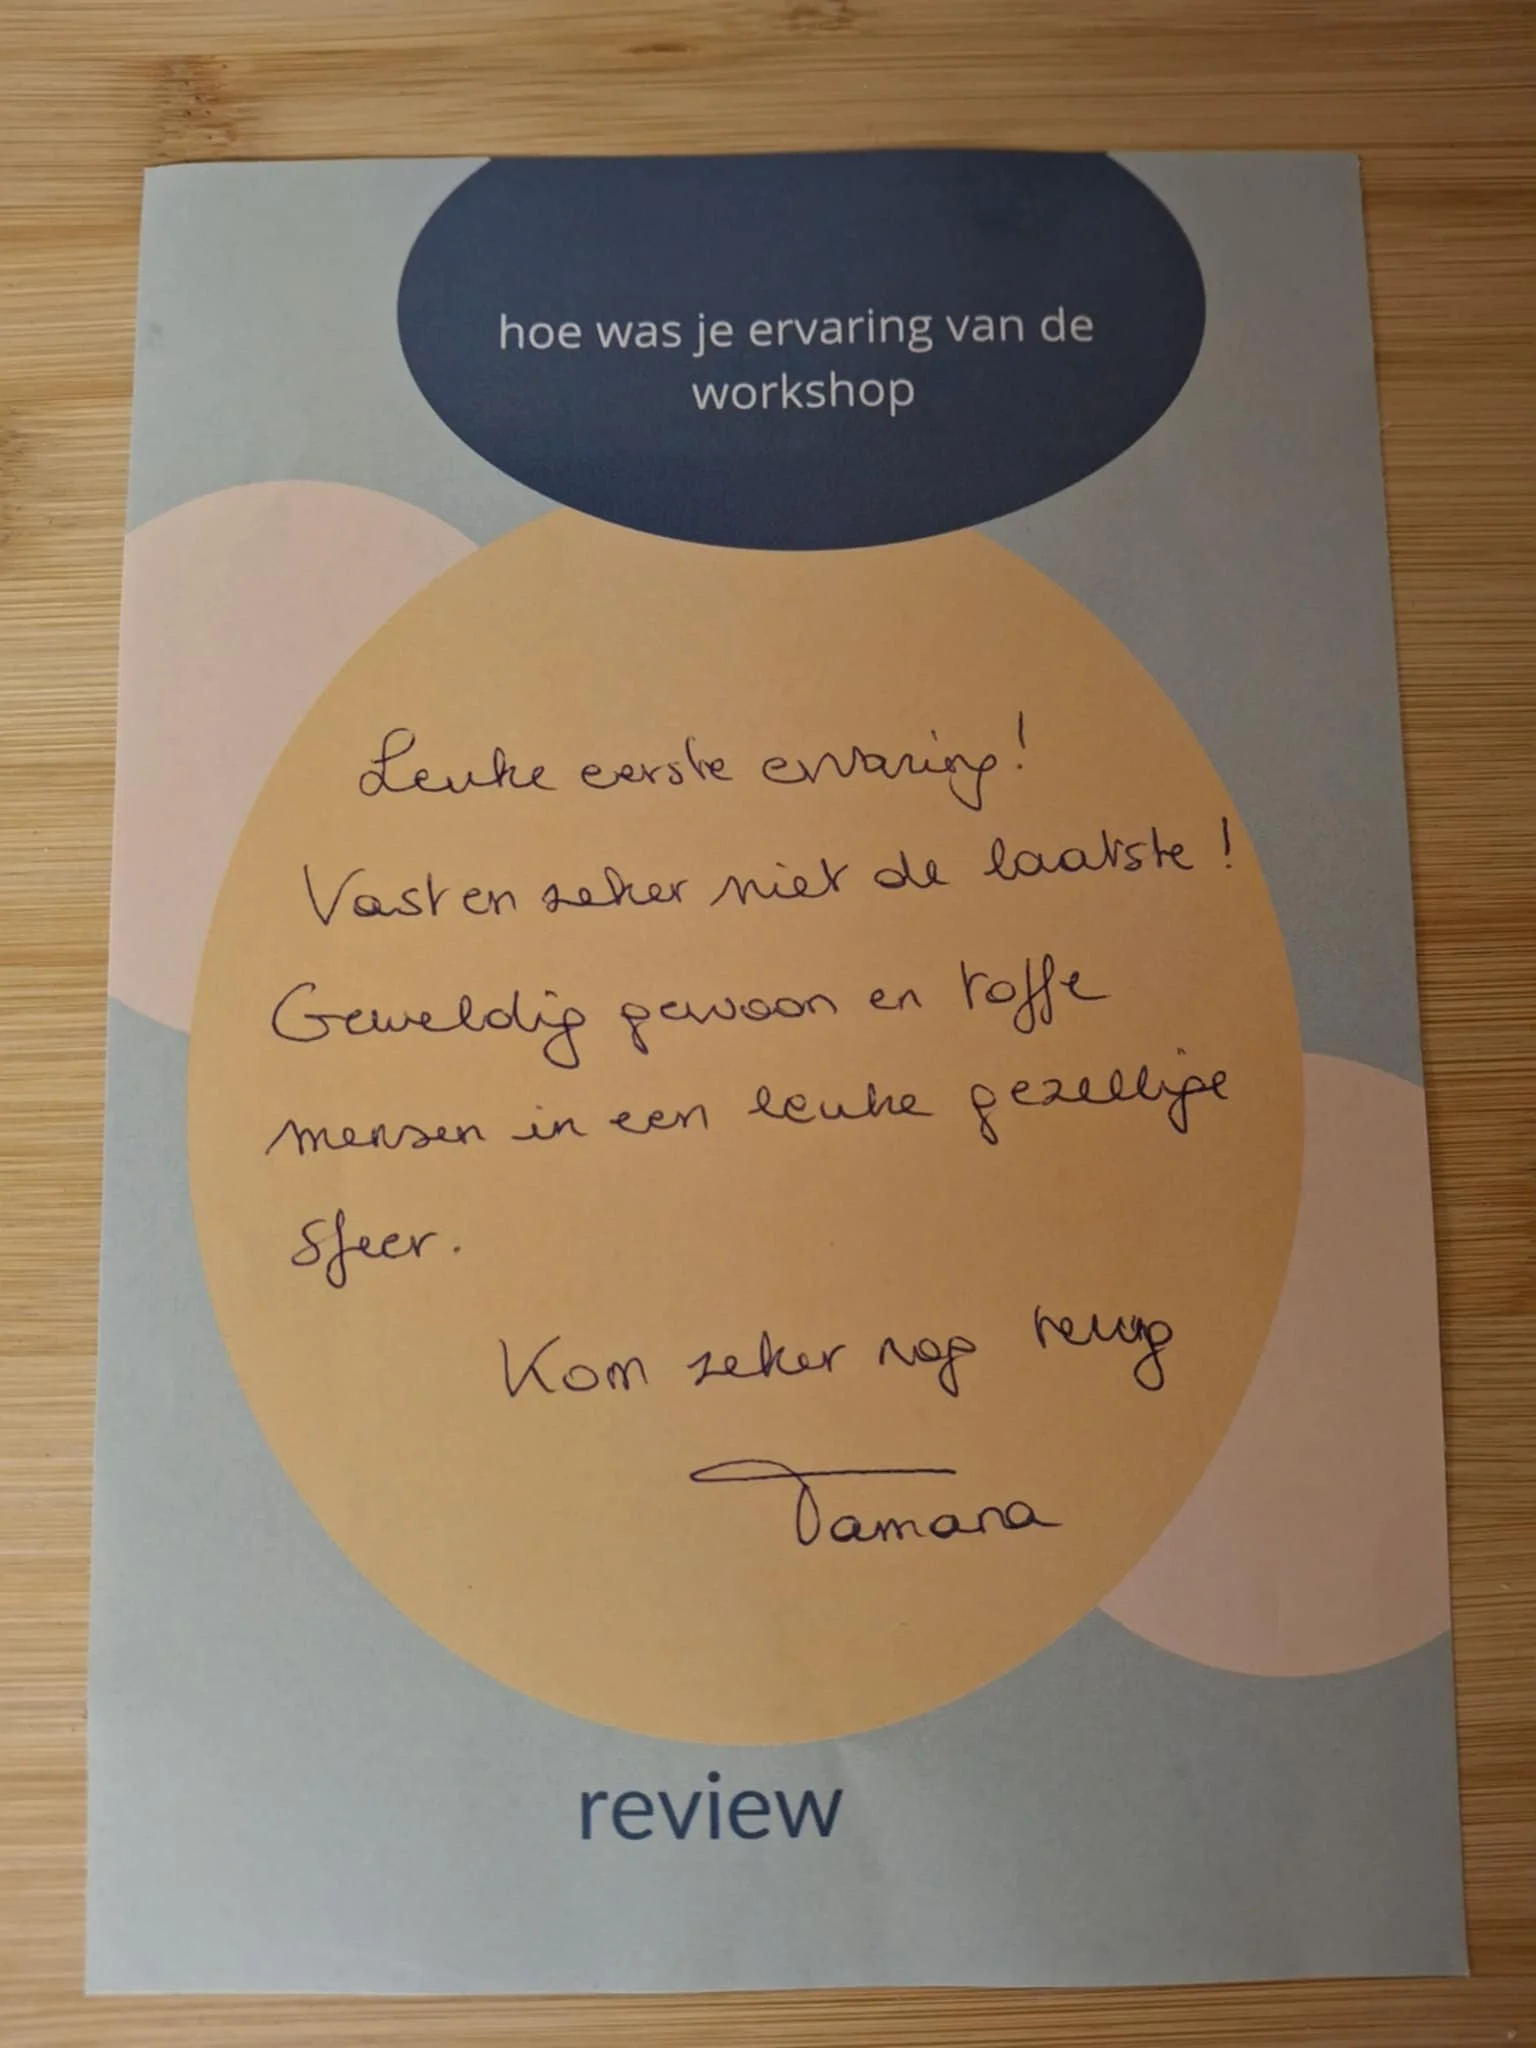 hoe was je ervaring van de
workshop
Leuke eerste ervaring!
Vast en zeker niet de laatste!
Geweldig gewoon en toffe
mensen in een leuke gezellige
sfeer.
Kom zeker nog terug
Tamara
review